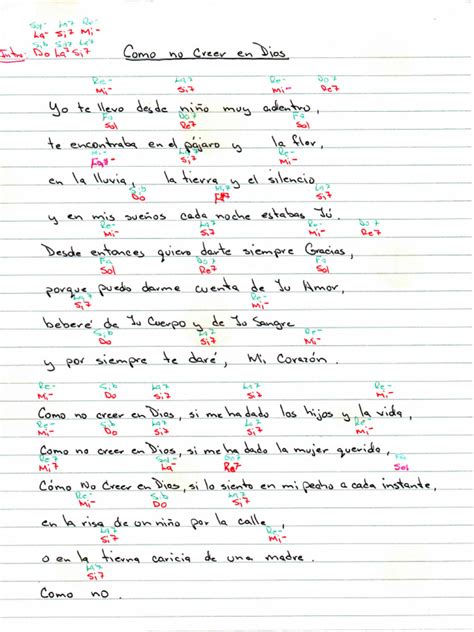 Sol- La7 Re-
La- Si7 Mi-
Sib La7
Intro: Do La7 Si7
Como no Creer en Dios
Re- La7 Re- Do7
Mi- Si7 Mi- Re7
Yo te llevo desde niño muy adentro,
Fa Do7
Sol Re7 Sol
te encontraba en el pájaro y la flor,
La7 Re-
Si7 Mi-
en la lluvia, la tierra y el silencio
Sib La7
Do Si7
y en mis sueños cada noche estabas Tú.
Re- La7 Re- Do7
Mi- Si7 Mi- Re7
Desde entonces quiero darte siempre Gracias,
Fa Do7 Fa
Sol Re7 Sol
porque puedo darme cuenta de Tu Amor,
La7 Re-
Si7 Mi-
beberé de Tu Cuerpo y de Tu Sangre
Sib La7
Do Si7
y por siempre te daré, Mi Corazón.
Re- Sib La7 La7 Re-
Mi- Do Si7 Si7 Mi-
Como no creer en Dios, si me ha dado los hijos y la vida,
Re- Sib La7 La7 Re-
Mi- Do Si7 Si7 Mi-
Como no creer en Dios, si me ha dado la mujer querida,
Re7 Sol- Do7 Fa
Mi7 La- Re7 Sol
Cómo No Creer en Dios, si lo siento en mi pecho a cada instante,
Re- Sib La7
Mi- Do Si7
en la risa de un niño por la calle,
La7 Re-
Si7 Mi-
o en la tierna caricia de una madre.
La7
Si7
Como no.